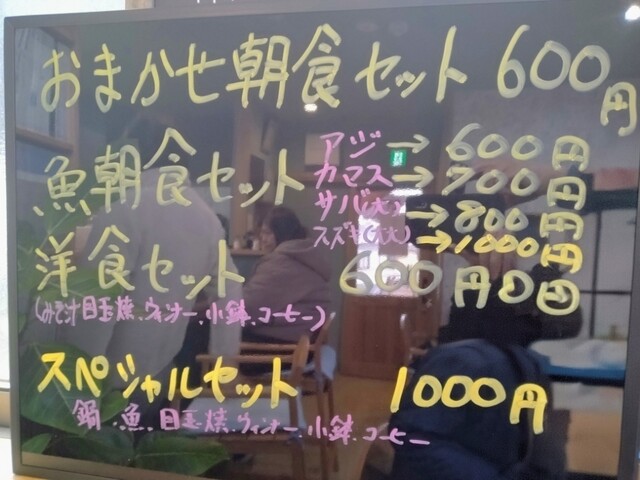 おまかせ朝食セット 600円
魚朝食セット アジ→600円
カマス→700円
サバ(大)→800円
スズキ(大)→1000円
洋食セット 600円
(みそ汁.目玉焼.ウィンナー.小鉢.コーヒー)
スペシャルセット 1000円
鍋.魚.目玉焼.ウィンナー.小鉢.コーヒー